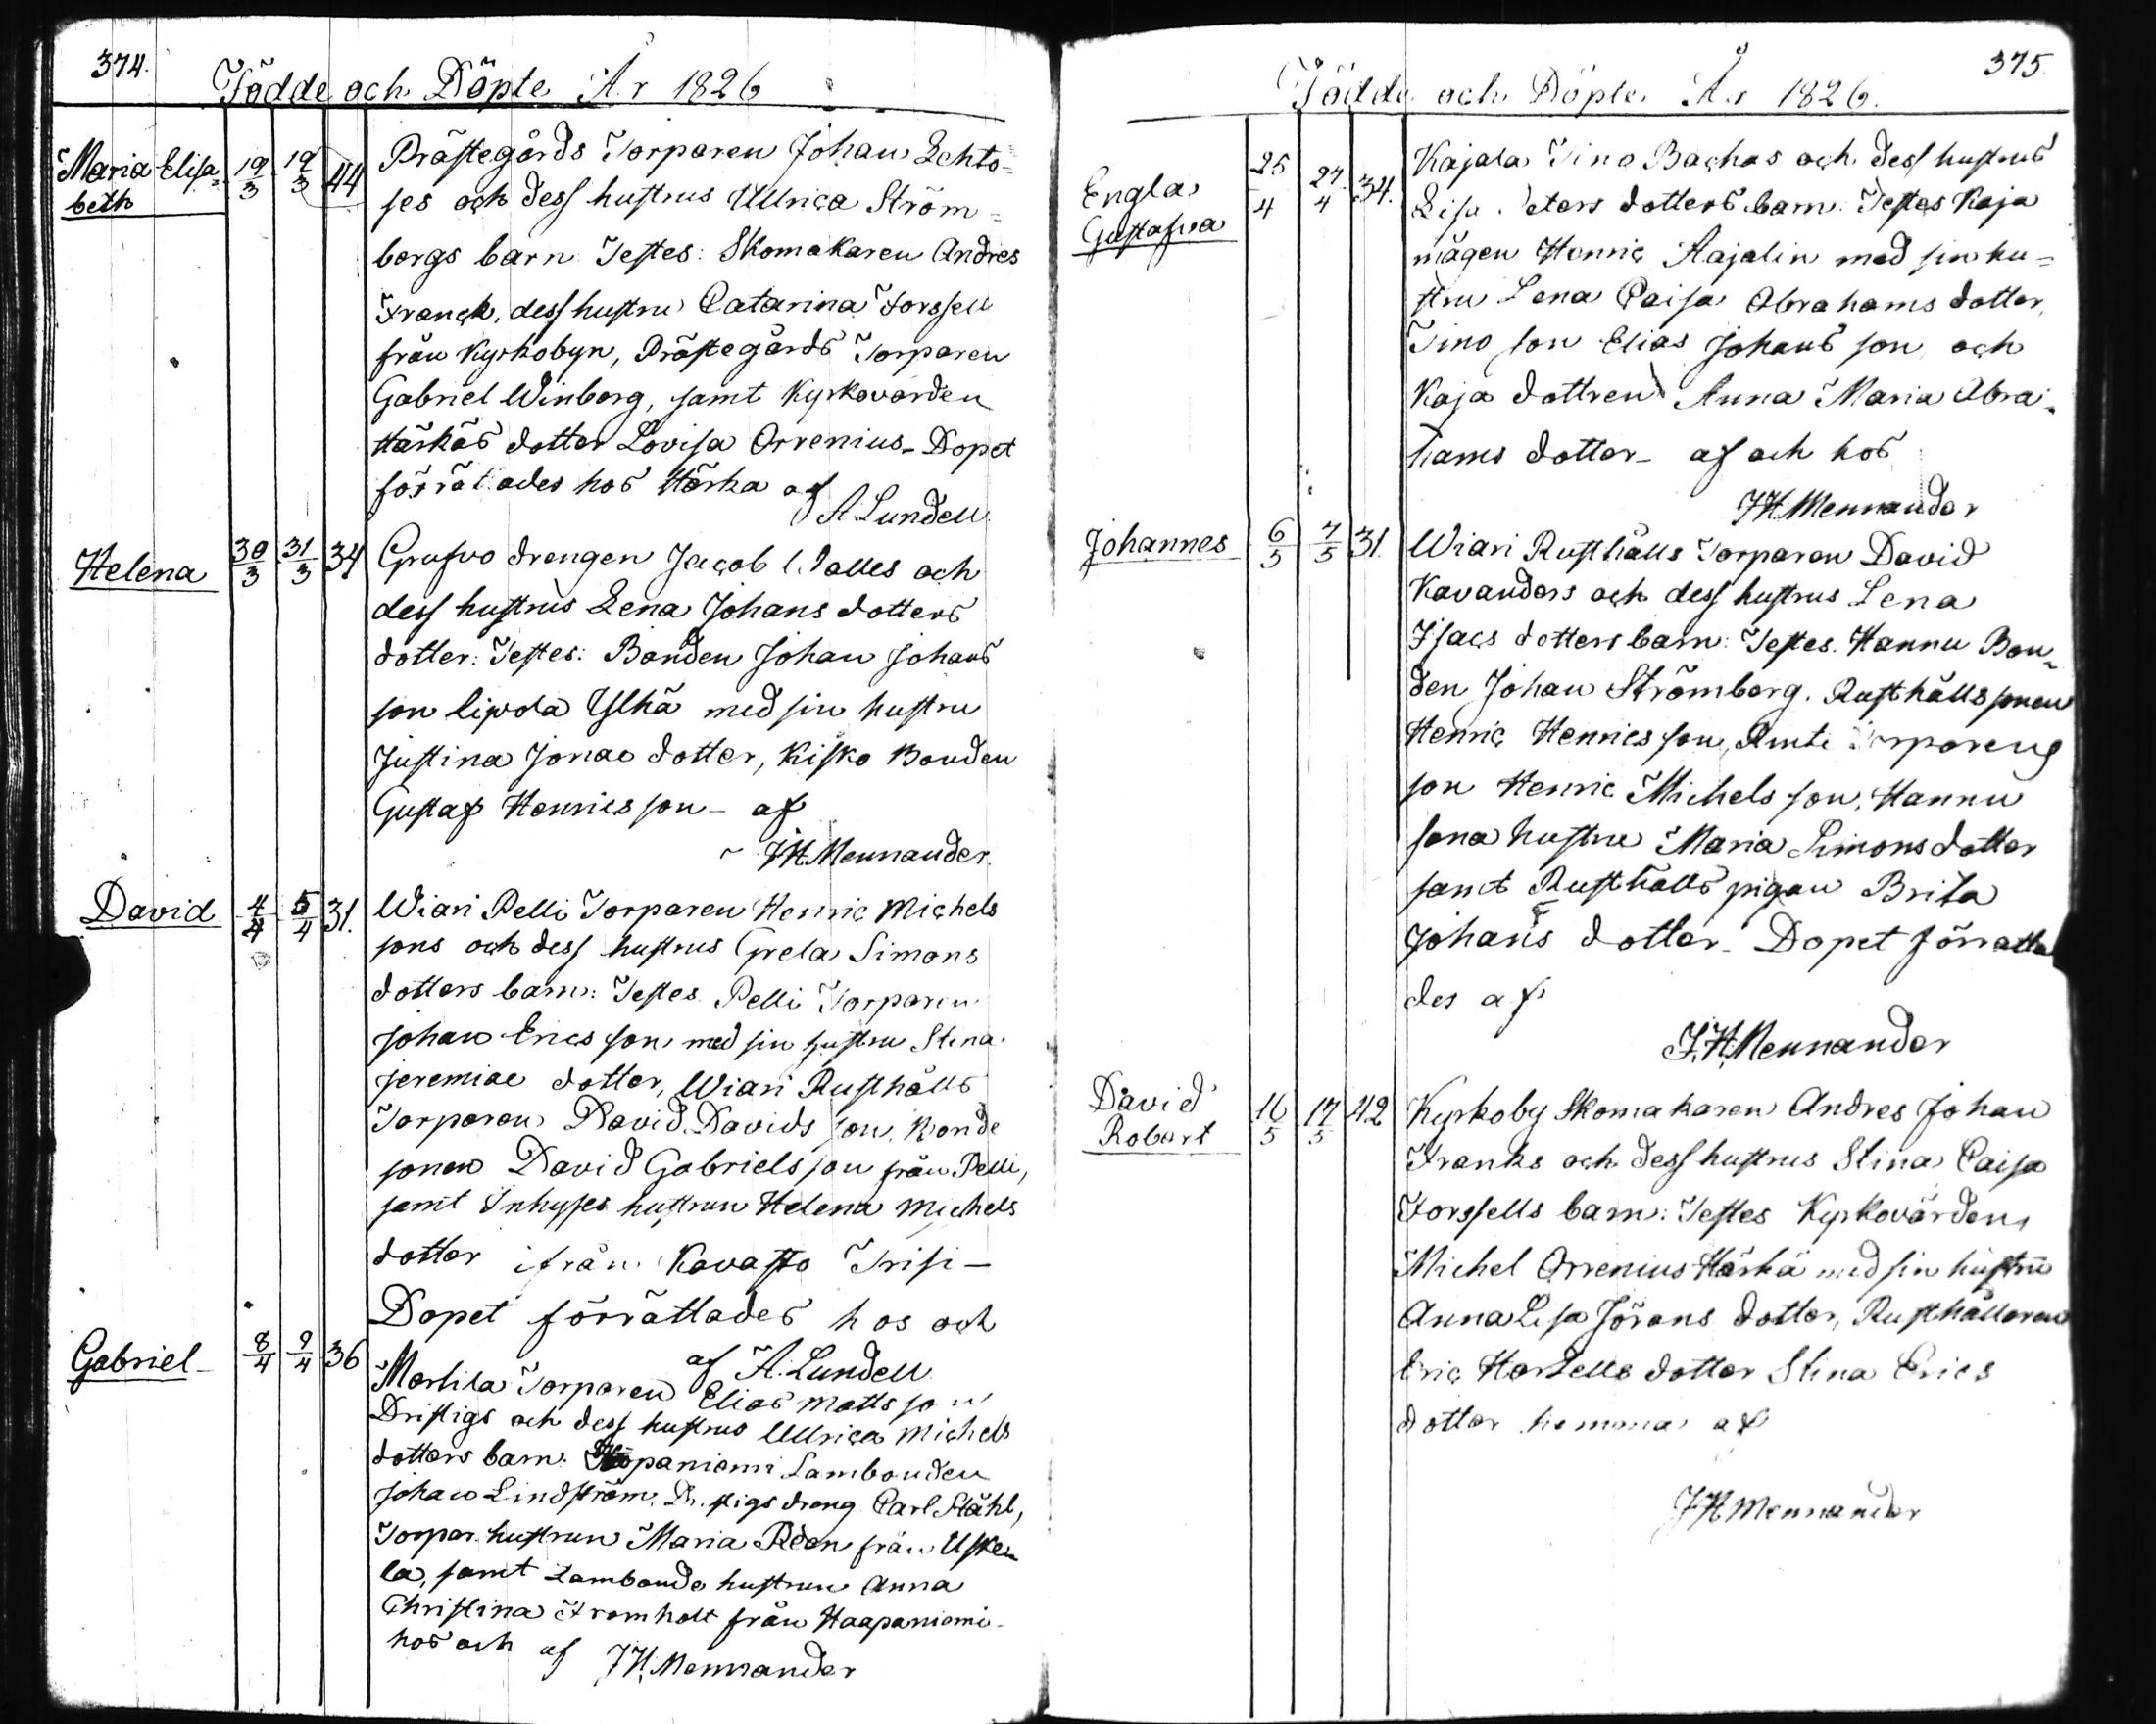 374.
Födde och Döpte År 1826
Maria Elisa=
beth
19/3 19/3 44
Prästegårds Torparen Johan Lehto=
ses och dess hustrus Ullrica Ström=
bergs barn Testes: Skomakaren Andres
Franck, dess hustru Catarina Forssell
från Kyrkobyn, Prästegårds Torparen
Gabriel Winberg, samt Kyrkovärden
Härkäs dotter Lovisa Orrenius - Dopet
förrättades hos Härkä af
A Lundell
Helena
30/3 31/3 34
Grufvo drengen Jacob Walles och
dess hustrus Lena Johans dotters
dotter: Testes: Bonden Johan Johans
son Lipola Ylhä med sin hustru
Justina Jonae dotter, Kisko Bonden
Gustaf Henrics son - af
JH Mennander
David
4/4 5/4 31.
Wiari Pelli Torparen Henric Michels
sons och dess hustrus Greta Simons
dotters barn: Testes Pelli Torparen
Johan Erics son med sin hustru Stina
Jeremiae dotter, Wiari Rusthålls
Torparen David Davids son, Bonde
sonen David Gabriels son från Pelli,
samt Inhyses hustrun Helena Michels
dotter ifrån Kavasto Trisi -
Dopet förrättades hos och
af A. Lundell
Gabriel
8/4 9/4 36
Martila Torparen Elias Matts son
Dristigs och dess hustrus Ullrica Michels
dotters barn: Haapaniemi Lambonden
Johan Lindström, Dristigs dreng Carl Ståhl,
Torpar hustrun Maria Reen från Uske
la, samt Lambonde hustrun Anna
Christina Fromholt från Haapaniemi
hos och af JH Mennander
375.
Födde och Döpte År 1826.
Engla
Gustafva
25/4 27/4 34.
Kajala Tino Bachas och dess hustrus
Lisa Peters dotters barn. Testes Kaja
mågen Henric Aajalin med sin hu=
stru Lena Caisa Abrahams dotter,
Tino son Elias Johans son och
Kaja dottren Anna Maria Abra=
hams dotter - af och hos
JH Mennander
Johannes
6/5 7/5 31.
Wiari Rusthålls Torparen David
Kavanders och dess hustrus Lena
Isacs dotters barn: Testes. Hannu Bon=
den Johan Strömberg. Rusthålls sonen
Henric Henrics son, Torparens
son Henric Michels son, Hannu
sona hustru Maria Simons dotter
samt Rusthålls pigan Brita
Johans dotter - Dopet förrätta
des af
J.H. Mennander
David
Robert
16/5 17/5 42
Kyrkoby Skomakaren Andres Johan
Franks och dess hustrus Stina Caisa
Forssells barn: Testes Kyrkovärden
Michel Orrenius Härkä med sin hustru
Anna Lisa Jörans dotter, Rusthållaren
Eric Hartells dotter Stina Erics
dotter hemma af
JH Mennander